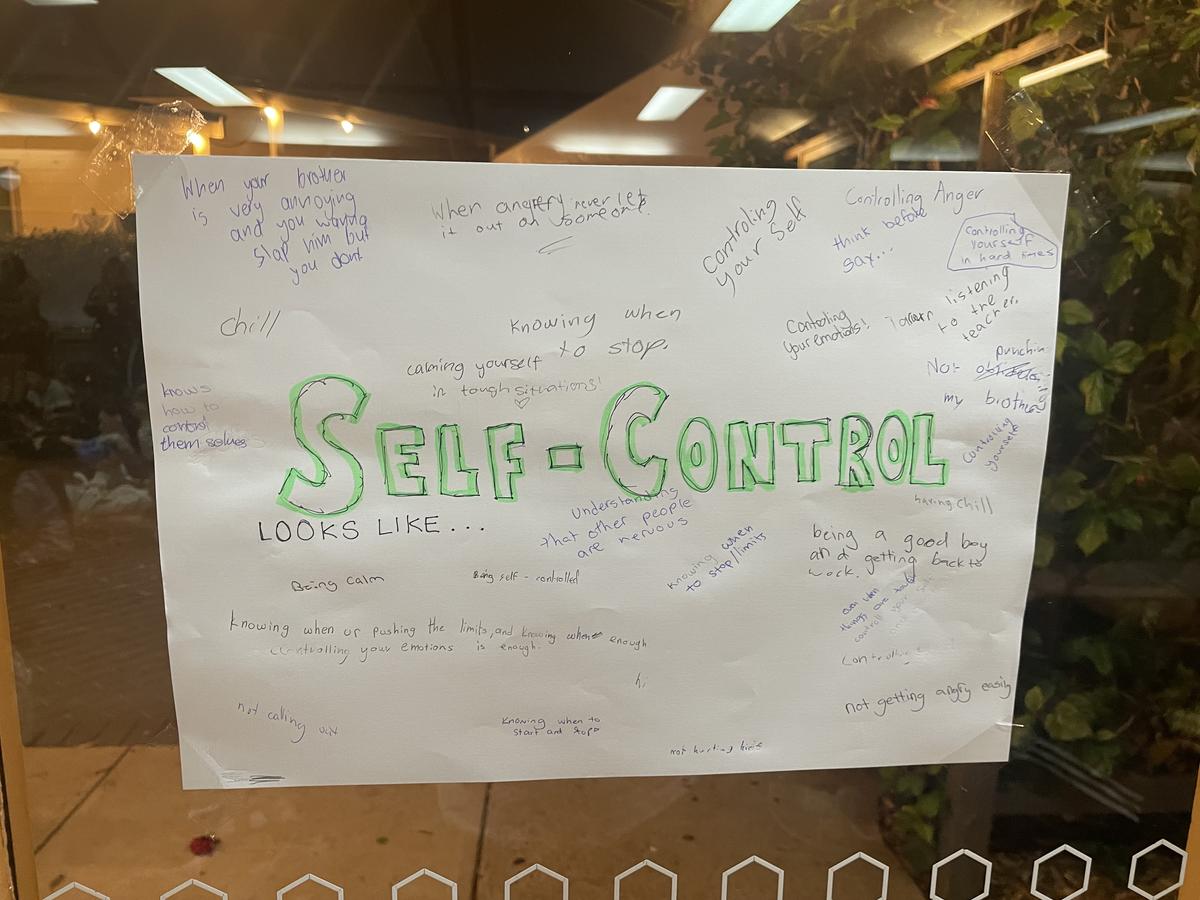 When your brother
is very annoying
and you wanna
slap him but
you dont
When angery never let
it out on someone.
controling
your self
Controlling Anger
think before
say...
Controlling
yourself
in hard times
chill
Knowing when
to stop.
calming yourself
in tough situations!
Controling
your emotions!
listening
to the
teacher.
Not
punching
my brother
knows
how to
control
them selves
SELF-CONTROL
LOOKS LIKE...
Controlling
yourself
having chill
Understanding
that other people
are nervous
knowing when
to stop/limits
being a good boy
and getting back to
work.
Being calm
Being self-controlled
even when
things are
control your
Knowing when ur pushing the limits, and knowing when enough
controlling your emotions is enough.
hi
not getting angry easily
not calling out
Knowing when to
start and stop
not hurting